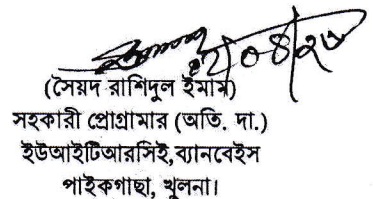 ০২/০৪/২৩
(সৈয়দ রাশিদুল ইমাম)
সহকারী প্রোগ্রামার (অতি. দা.)
ইউআইটিআরসিই,ব্যানবেইস
পাইকগাছা, খুলনা।